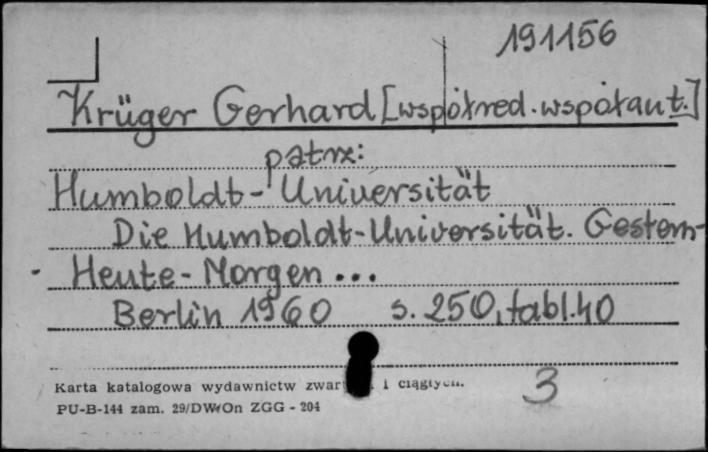 191156
Krüger Gerhard [współred. współaut.]
patrz:
Humboldt-Universität
Die Humboldt-Universität. Gestern-
Heute-Morgen ...
Berlin 1960 s. 250, tabl. 40
Karta katalogowa wydawnictw i ciągłych.
3
PU-B-144 zam. 29/DW/On ZGG - 204